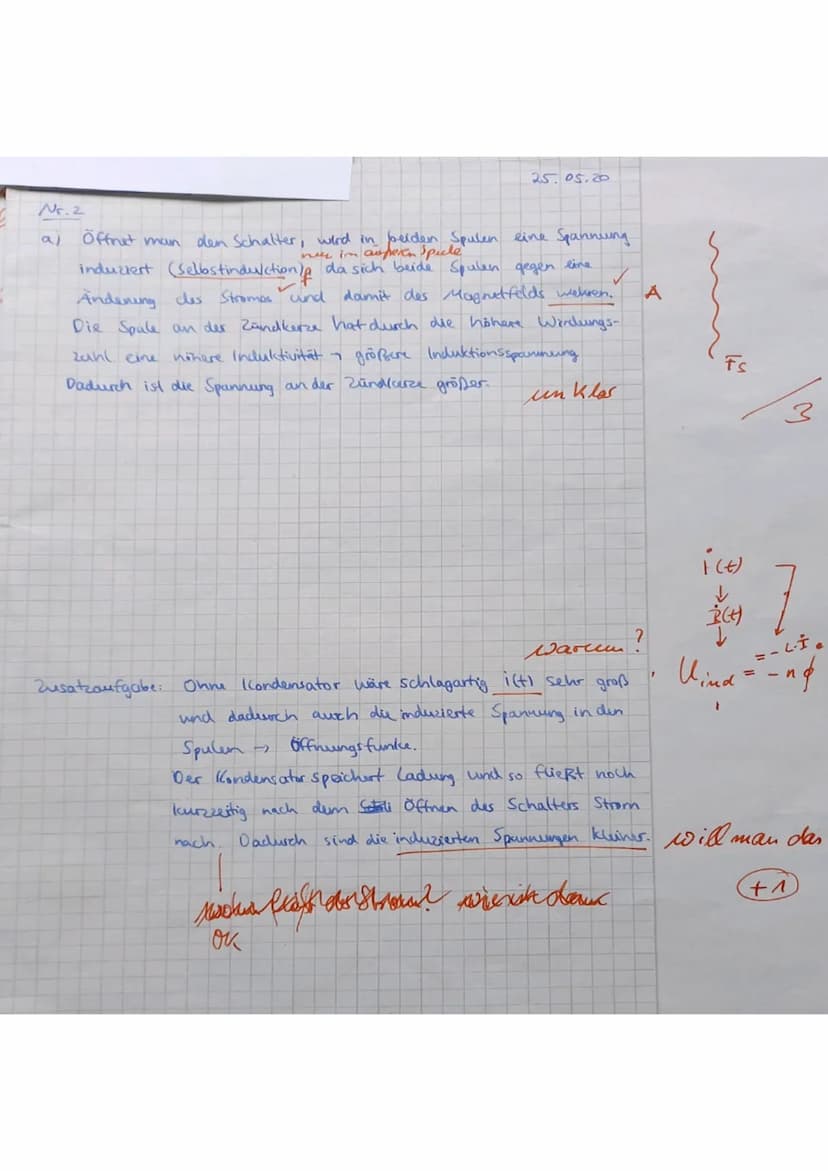 25.05.20
Nr. 2
a) Öffnet man den Schalter, wird in beiden Spulen eine Spannung
nur im äußeren Spule
induziert (Selbstinduktion), f da sich beide Spulen gegen eine
Änderung des Stromes ✓ und damit des Magnetfelds wehren. ✓ A
Die Spule an der Zündkerze hat durch die höhere Windungs-
zahl eine höhere Induktivität → größere Induktionsspannung
Fs
Dadurch ist die Spannung an der Zündkerze größer.
unklar
/3
i(t)
↓
Ḃ(t)
↓
= - L·İ
Uind = - n ϕ
warum?
Zusatzaufgabe: Ohne Kondensator wäre schlagartig i(t) sehr groß
und dadurch auch die induzierte Spannung in den
Spulen → Öffnungsfunke.
Der Kondensator speichert Ladung und so fließt noch
kurzzeitig nach dem Öffnen des Schalters Strom
nach. Dadurch sind die induzierten Spannungen kleiner.
will man das
+1
der Strom?
OK